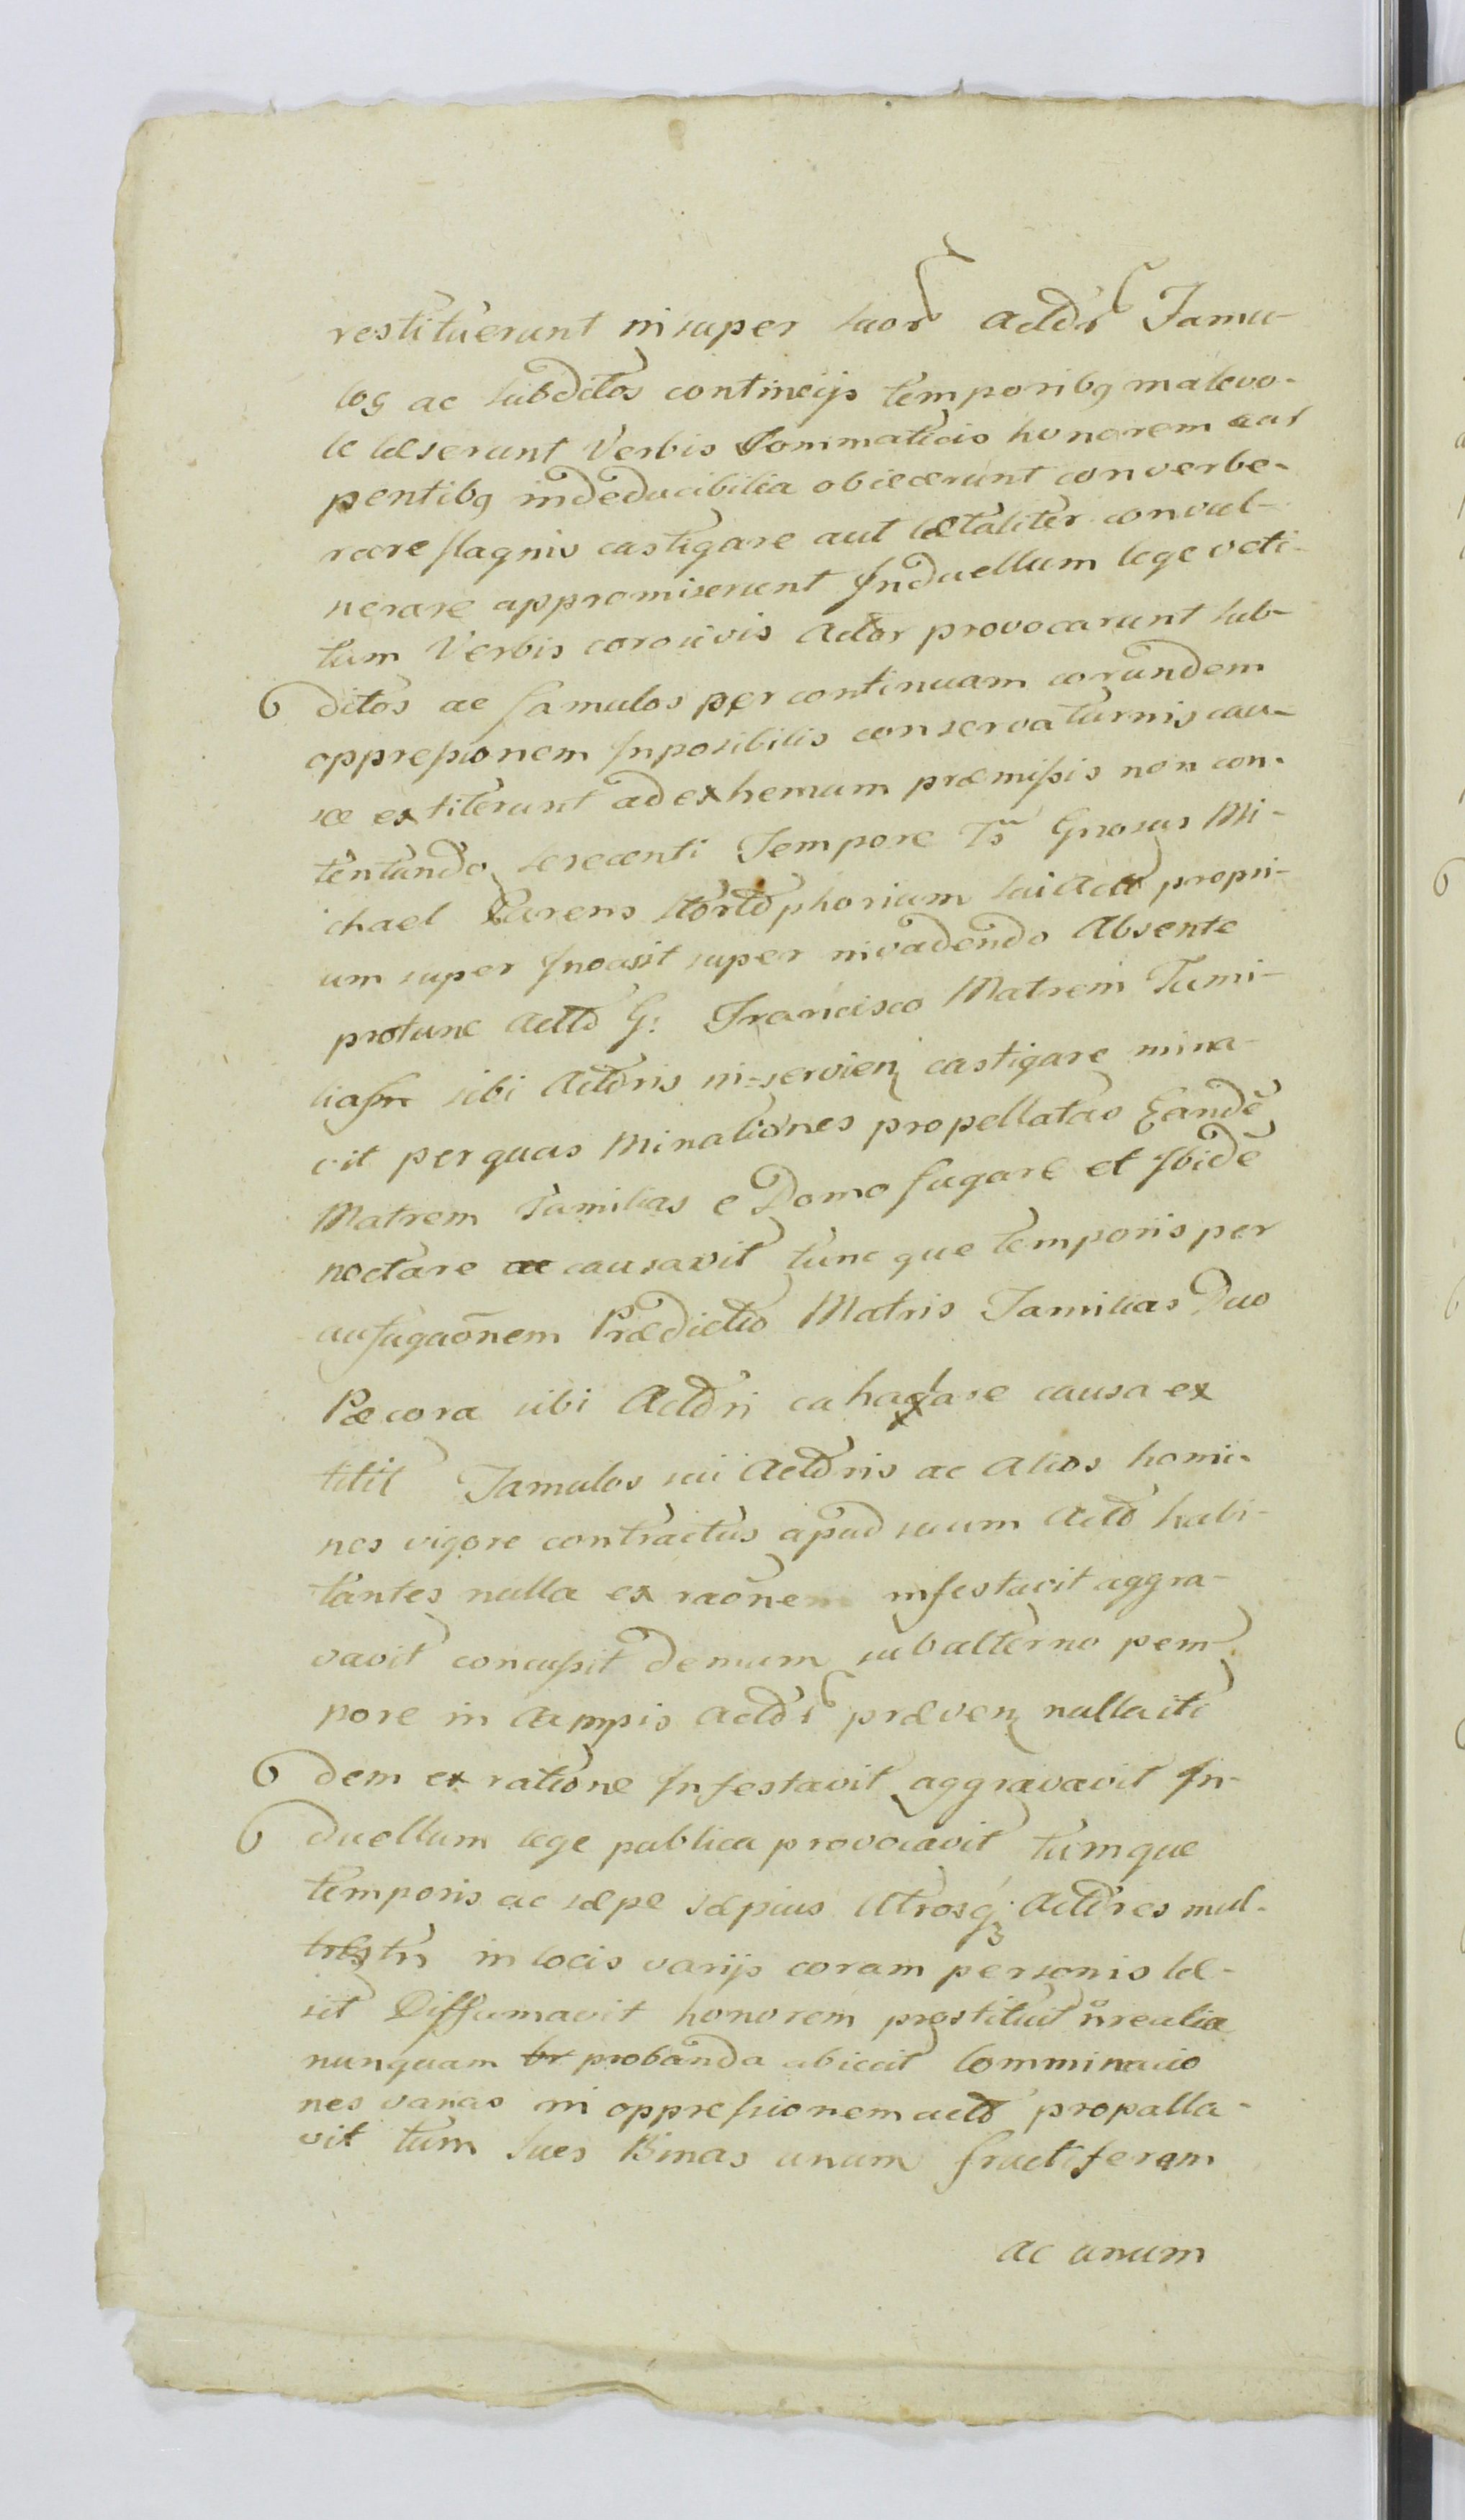 restituerunt insuper suor Actôr Famu-
los ac subditos contincijs temporibq malevo-
le læserunt Verbis Commaticis honorem car
pentibq indeducibilia obiecerunt converbe-
rare flagnis castigare aut lætaliter convul-
nerare appromiserunt Induellum lege veti-
tum Verbis corosivis Actor provocarunt sub-
ditos ac famulos per continuam eorundem
oppressionem Inposibilis conservaturnis cau-
sæ extiterunt ad exhemum præmissis non con-
tentando serecenti Tempore Ts Gnosus Mi-
chael Parens sui Actô propri-
um super Invasit super invadendo Absente
protunc Actô G: Francisco Matrem Fami-
lias sibi Actôris in-servien castigare mina-
vit per quas Minationes propellatas Eandē
Matrem Familias e Domo fugare et Ibidē
noctare causavit tunc que temporis per
aufugaōnem Prædictio Matris Familias Duo
Pæcora sibi Actôri causa ex
titit Famulos sui Actôris ac alios homi-
nes vigore contractus apud suum Actô habi-
tantes nulla ex raōnem infestavit aggra-
vavit concussit demum subalterno pem-
pore in Campis Actôr præven nulla iti
dem ex ratione Infestavit aggravavit In-
duellum lege publica provocavit tumque
temporis ac sæpe sæpius Utrosq; Actôres mul-
tis in locis varijs coram personis læ-
sit Diffamavit honorem prostituit irrealia
nunquam probanda abiecit Comminacio
nes varias in oppressionem actô propalla-
vit tum sues Binas unum fructiferam
ac unum